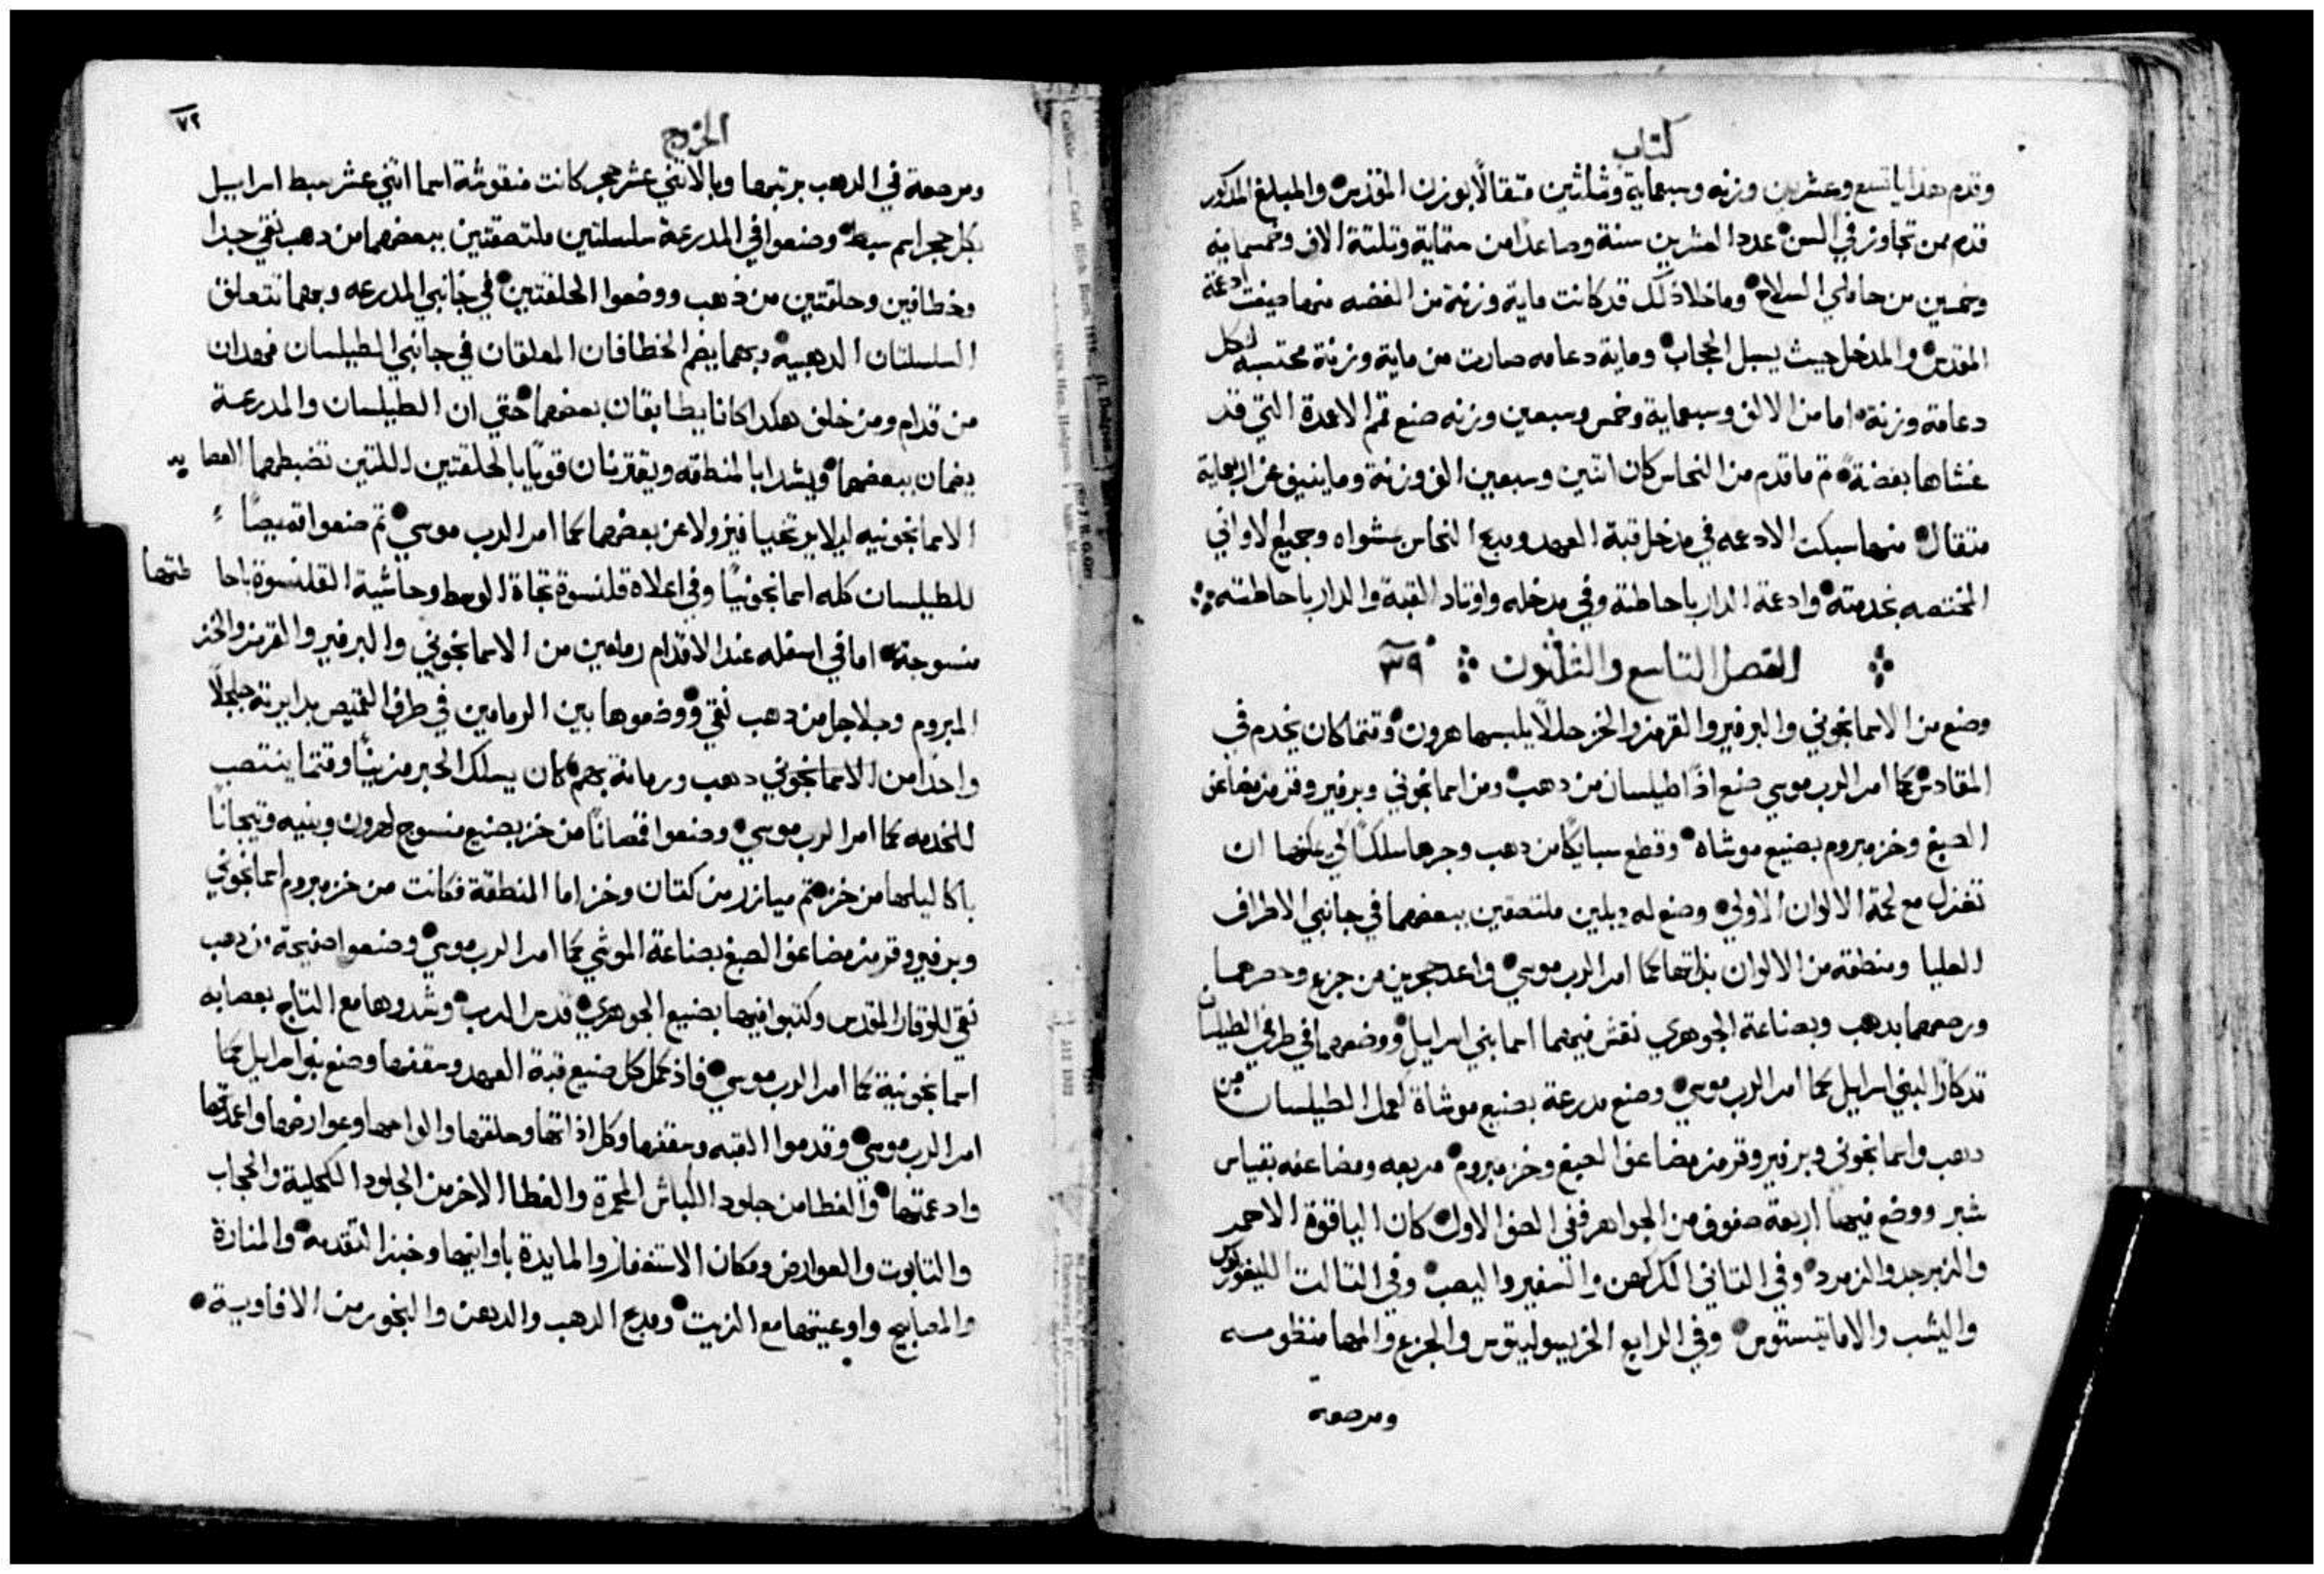 كتاب
وقدم هدايا تسع وعشرين وزنه وسبعماية وثلثين متقالاً بوزن المقدس والمبلغ المذكور
قدم ممن تجاوز في السن عدد العشرين سنة وصاعدا من ستماية وتلتة الاف وخمسماية
وخمسين من حاملي السلاح وماخلا ذلك قد كانت ماية وزنة من الفضه منها صيغت ادعمة
المقدس والمدخل حيث يسبل الحجاب وماية دعامه صارت من ماية وزنة محتسبه لكل
دعامة وزنة اما من الالف وسبعماية وخمس وسبعين وزنه صنع قمم الاعمدة التي قد
غشاها بفضة تم ما قدم من النحاس كان اتنين وسبعين الف وزنة وما ينيف عن اربعماية
متقال منها سبكت الادعمه في مدخل قبة العهد ومدبح النحاس بمشواه وجميع الاواني
المختصه بخدمته وادعمة الدار باحاطته وفي مدخله واوتاد القبة والدار باحاطته
الفصل التاسع والتلتون ٣٩
وضع من الاسمانجوني والبرفير والقرمز والخز حللاً يلبسها هرون وقتما كان يخدم في
المقادس كما امر الرب موسي صنع اذًا طيلسان من دهب ومن اسمانجوني وبرفير وقرمز مضاعف
الصبغ وخز مبروم بصنيع موشاه وقطع سبايكًا من دهب وجرها سلكًا كي يمكنها ان
تغزل مع لحمة الالوان الاولي وصنع له ديلين ملتصقين ببعضهما في جانبي الاطراف
العليا ومنطقه من الالوان بذاتها كما امر الرب موسي واعد حجرين من جزع وحصرهما
ورصعهما بدهب وبصناعة الجوهري نقش فيهما اسما بني اسراييل ووضعهما في طرفي الطيلسان
تدكارًا لبني اسراييل كما امر الرب موسي وصنع مدرعة بصنيع موشاة لعمل الطيلسان من
دهب واسمانجوني وبرفير وقرمز مضاعف الصبغ وخز مبروم مربعه ومضاعفه بقياس
شبر ووضع فيها اربعة صفوف من الجواهر ففي الصف الاول كان الياقوة الاحمر
والزبرجد والزمرد وفي التاني الكركهن والسفير واليصب وفي التالت الليغوريون
واليشب والاماتيستوس وفي الرابع الخريسوليتوس والجزع والمها منظومسه
ومرصعه
الخروج
٧٢
ومرصعة في الدهب برتبها وبالاتني عشر حجر كانت منقوشة اسما اتني عشر سبط اسراييل
بكل حجر اسم سبط وصنعوا في المدرعة سلسلتين ملتصقتين ببعضهما من دهب نقي جدا
وخطافين وحلقتين من ذهب ووضعوا الحلقتين في جانبي المدرعه وبهما تتعلق
السلسلتان الدهبيه وبهما يضم الخطافان المعلقان في جانبي الطيلسان فهدان
من قدام ومن خلف هكدا كانا يطابقان بعضهما حتي ان الطيلسان والمدرعة
يضمان ببعضهما ويشدا بالمنطقه ويقترنان قويًا بالحلقتين اللتين تضبطهما العصايد
الاسمانجونيه ليلا يرتخيا فيزولا عن بعضهما كما امر الرب موسي تم صنعوا قميصًا
للطيلسان كله اسمانجونيًا وفي اعلاه قلنسوة تجاة الوسط وحاشية القلنسوة باحاطتها
منسوجة اما في اسفله عند الاقدام رمامين من الاسمانجوني والبرفير والقرمز والخز
المبروم وجلاجل من دهب نقي ووضعوها بين الرمامين في طرف القميص بدايرته جلجلًا
واحدا من الاسمانجوني دهب ورمانة بهم كان يسلك الحبر مزينًا وقتما ينتصب
للخدمه كما امر الرب موسي وصنعوا قمصانًا من خز بصنيع منسوج لهرون وبنيه وتيجانًا
باكاليلها من خز تم ميازر من كتان وخز اما المنطقة فكانت من خز مبروم اسمانجوني
وبرفير وقرمز مضاعف الصبغ بصناعة الموشي كما امر الرب موسي وصنعوا صفيحة من دهب
نقي للوقار المقدس وكتبوا فيها بصنيع الجوهري قدس الرب وشدوها مع التاج بعصابه
اسمانجونية كما امر الرب موسي فاذ كمل كل صنيع قبة العهد وسقفها وصنع بنو اسراييل كما
امر الرب موسي وقدموا القبه وسقفها وكل اذاتها وحلقها والواحها وعوارضها واعمدتها
وادعمتها والغطا من جلود الكباش المحمرة والغطا الاخر من الجلود الكحلية والحجاب
والتابوت والعوارض ومكان الاستغفار والمايدة باوانيها وخبز التقدمه والمنارة
والمصابيح واوعيتها مع الزيت ومدبح الدهب والدهن والبخور من الافاويه